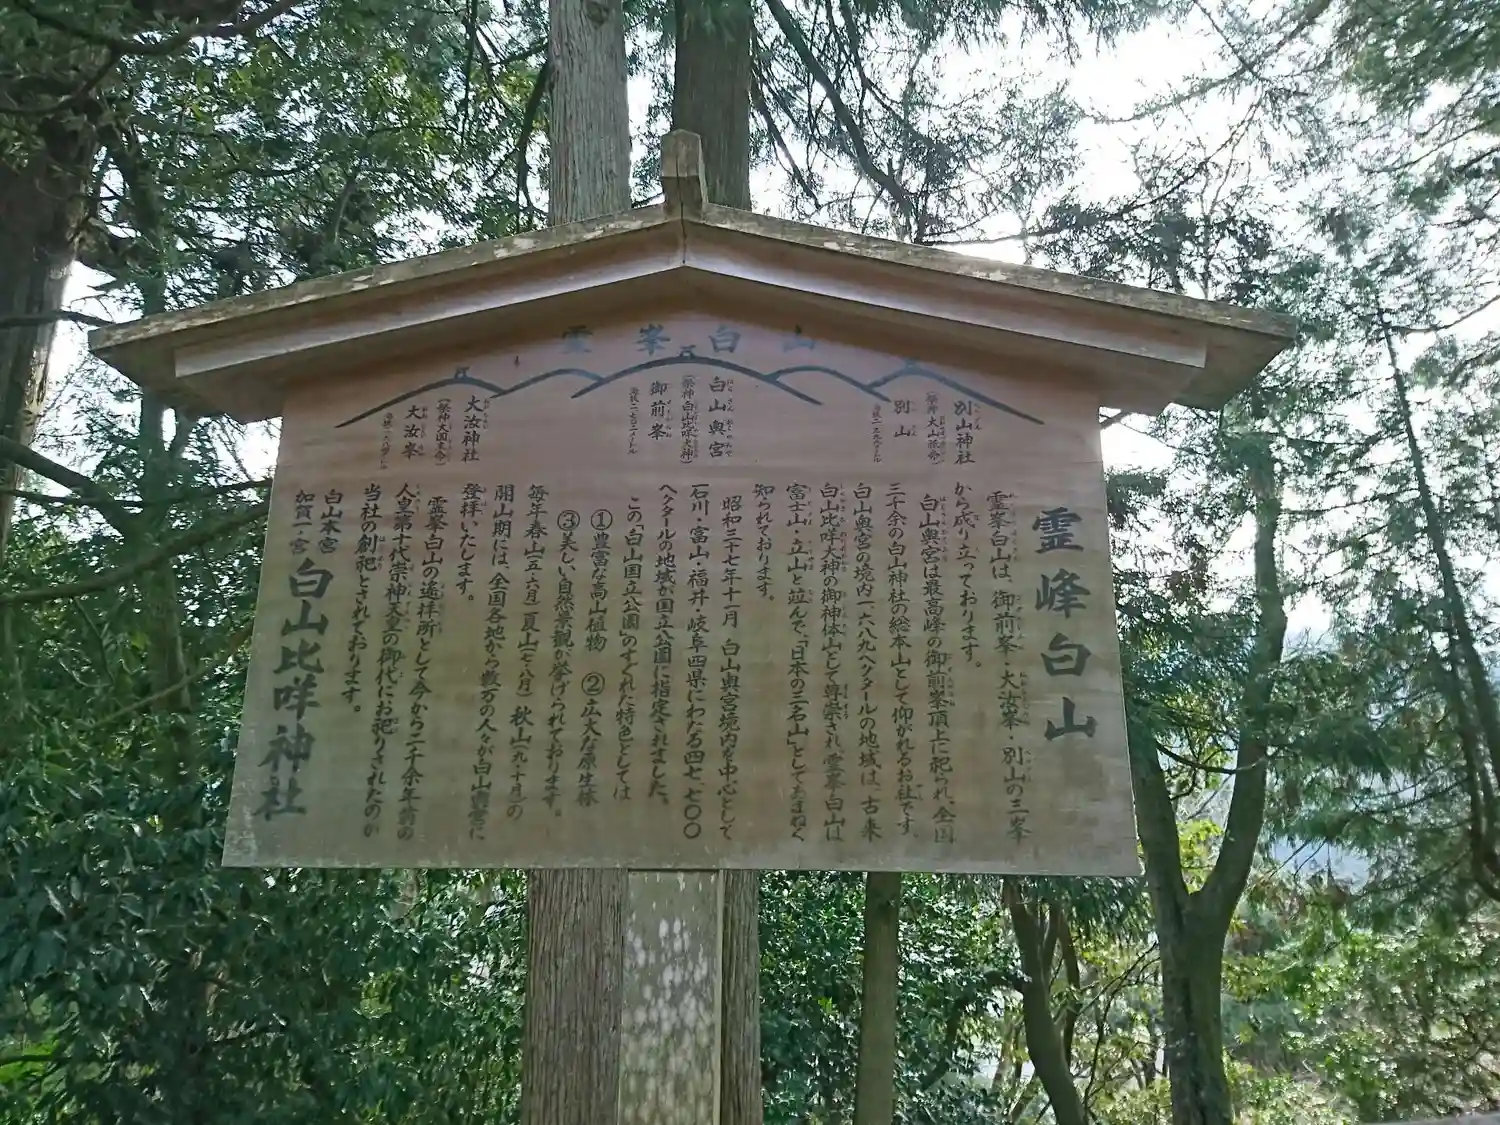 霊峯白山
別山神社
(祭神 大山祇命)
別山
海抜二、三九九メートル
白山奥宮
(祭神 白山比咩大神)
御前峯
海抜二七〇二メートル
大汝神社
(祭神 大国主命)
大汝峯
霊峰白山
霊峯白山は、御前峯・大汝峯・別山の三峯
から成り立っております。
白山奥宮は最高峰の御前峯頂上に祀られ、全国
三千余の白山神社の総本山として仰がれるお社です。
白山奥宮の境内一、六八九ヘクタールの地域は、古来
白山比咩大神の御神体山として尊崇され、霊峯白山は
富士山・立山と竝んで、「日本の三名山」としてあまねく
知られております。
昭和三十七年十一月 白山奥宮境内を中心として
石川・富山・福井・岐阜四県にわたる四七、七〇〇
ヘクタールの地域が国立公園に指定されました。
この「白山国立公園」のすぐれた特色としては
①豊富な高山植物 ②広大な原生林
③美しい自然景観が挙げられております。
毎年春山(五・六月)夏山(七・八月) 秋山(九・十月)の
開山期には、全国各地から数万の人々が白山霊峯に
登拝いたします。
霊峯白山の遙拝所として今から二千余年前の
人皇第十代崇神天皇の御代にお祀りされたのが
当社の創祀とされております。
白山本宮
加賀一ノ宮
白山比咩神社